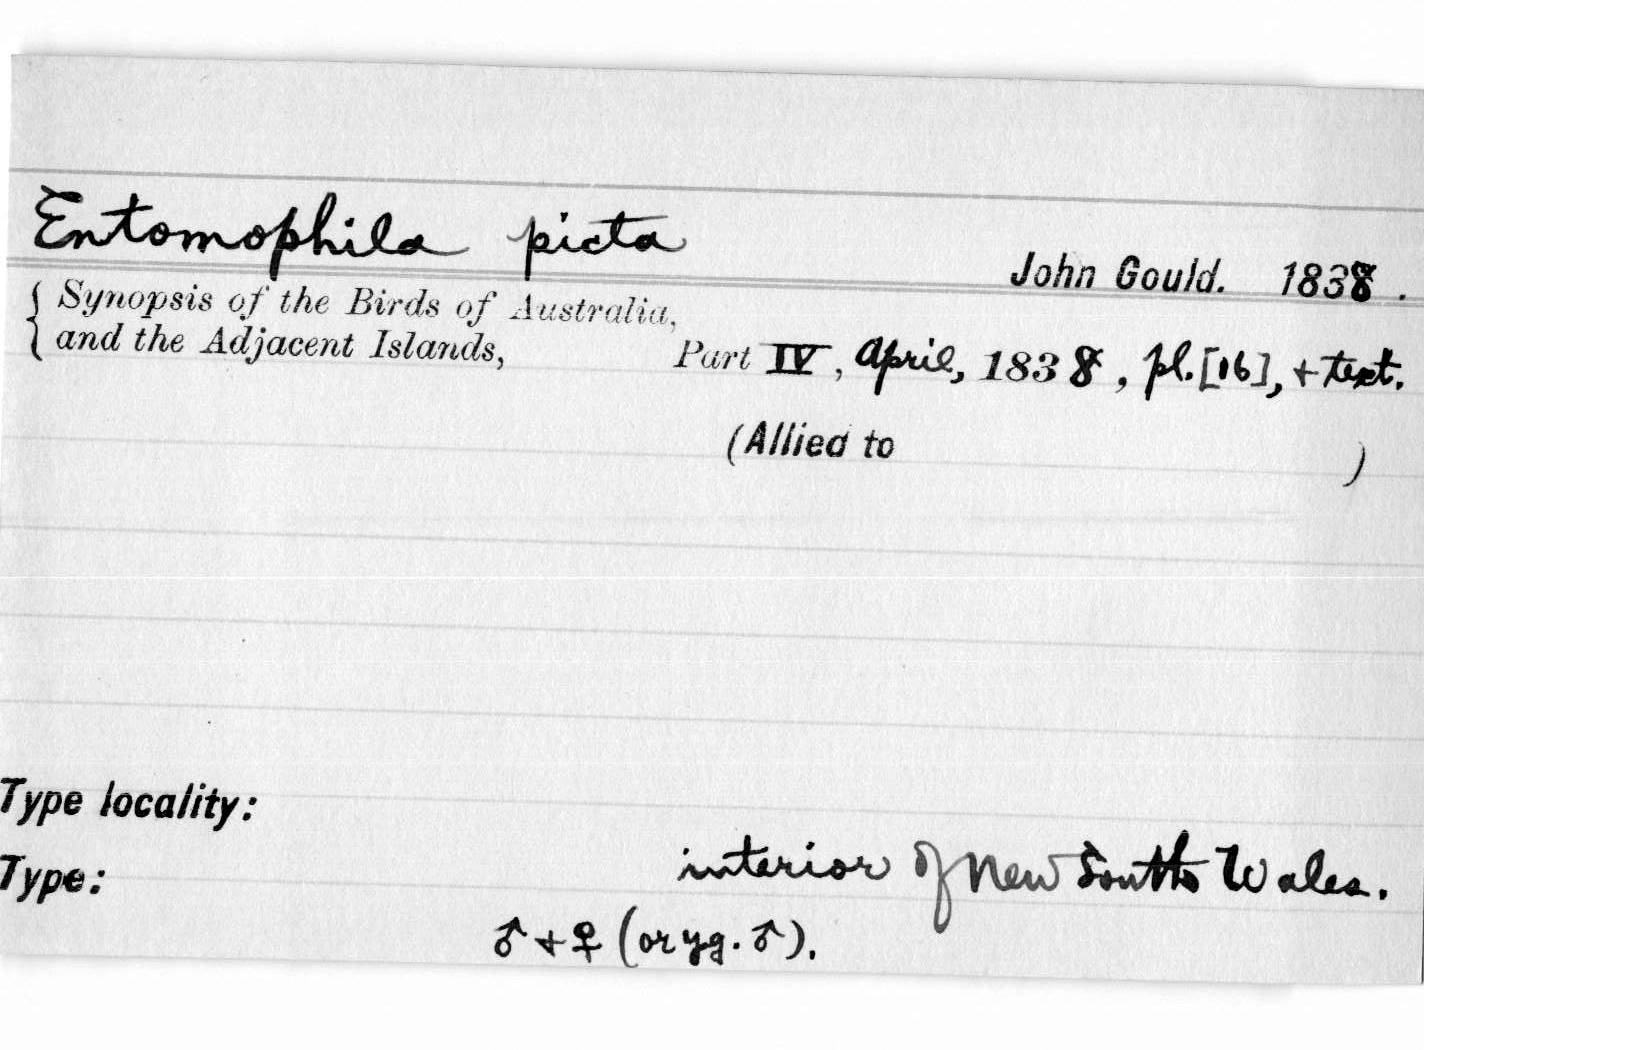 Entomophila picta
John Gould. 1838.
{ Synopsis of the Birds of Australia,
and the Adjacent Islands, Part IV, April, 1838, pl. [16], + text.
(Allied to )
Type locality:
interior of New South Wales.
Type:
♂ + ♀ (or yg. ♂).